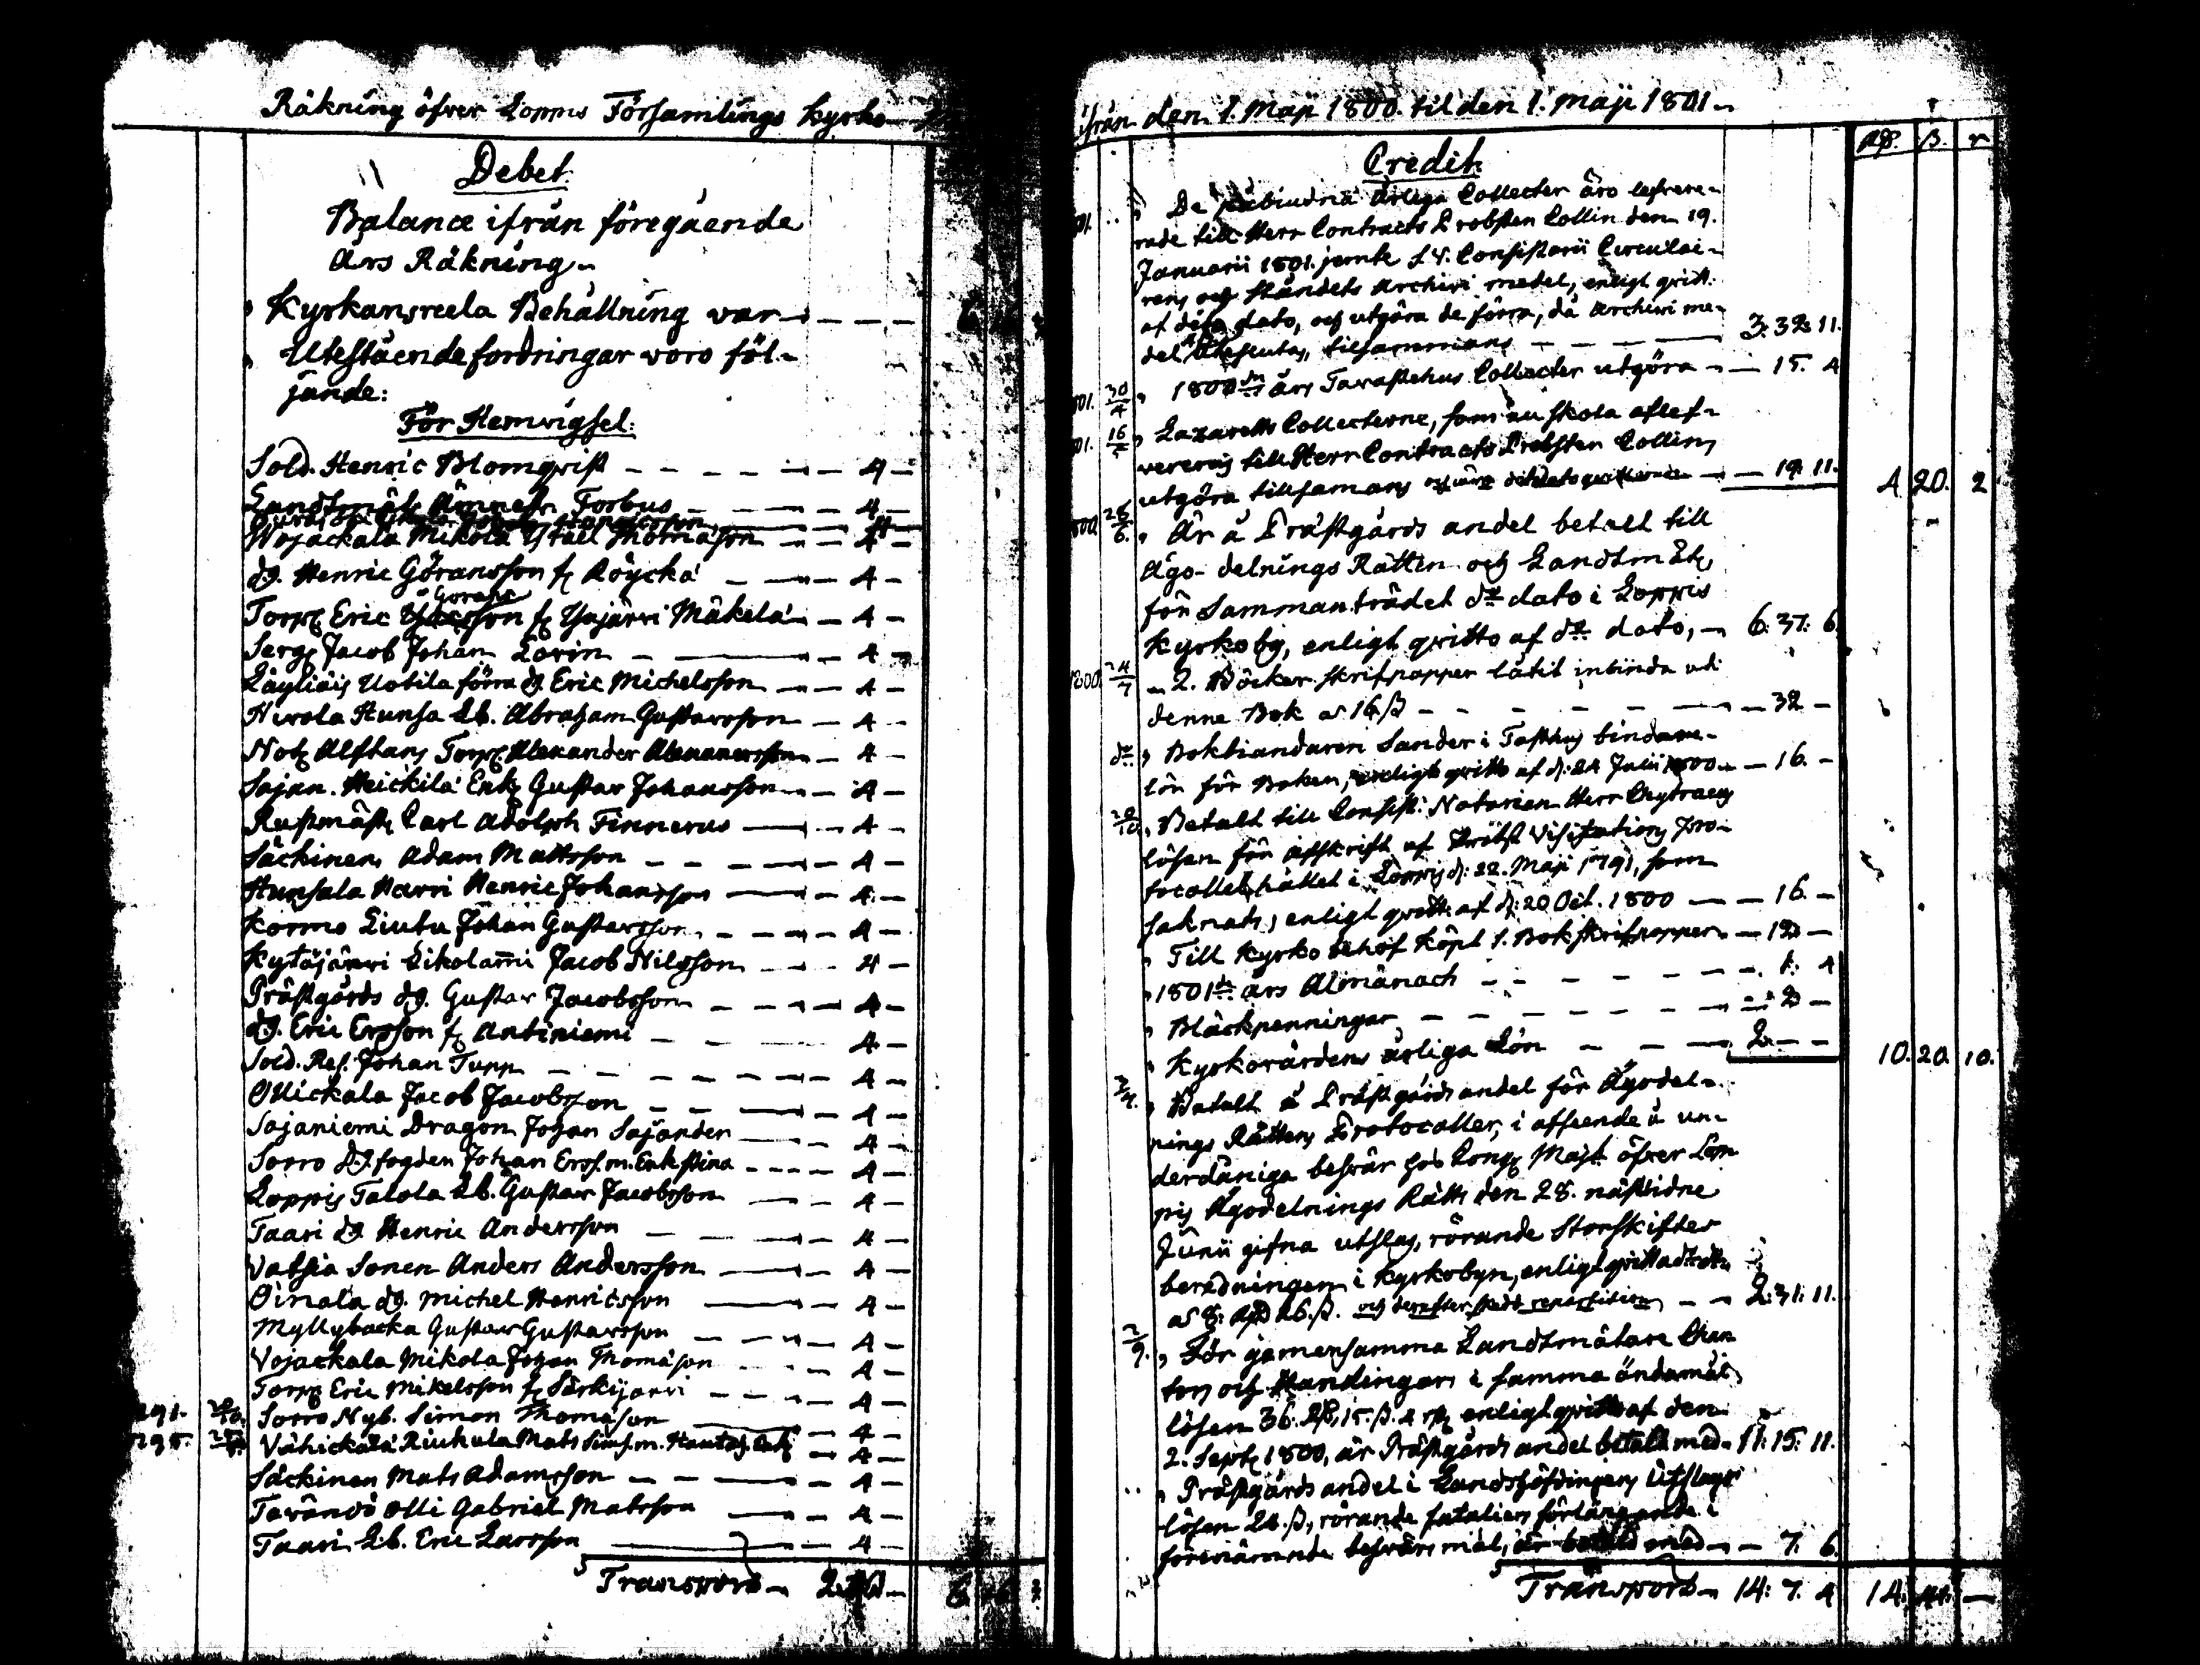 Räkning öfver Loppis Församlings Kyrko
Debet.
Balance ifrån föregående
Års Räkning
Kyrkans reela Behållning var
Utestående fordringar voro föl-
jande:
För Hemvigsel:
Sold. Henric Blomqvist - 4 -
Landtmät. Torbus - 4 -
Wojackala Mikola Thomasson - 4 -
dg. Henric Göransson fr Röyckä - 4 -
Görans
Torp. Eric fr Yajärvi Mäkelä - 4 -
Serg. Jacob Johan Lorin - 4 -
Läyliäis Uotila förra dg. Eric Michelsson - 4 -
Hirvola Hunsa Lb. Abraham Gustavsson - 4 -
Not. Alftans Torp. Alexander - 4 -
Sajan. Heickilä Enk. Gustav Johansson - 4 -
Rustmäst. Carl Adolph Finnerus - 4 -
Säckinen Adam Mattsson - 4 -
Hunsala Harri Henric Johansson - 4 -
Kormo Liutu Johan Gustavsson - 4 -
Kytäjärvi Likolammi Jacob Nilsson - 4 -
Prästgårds dg. Gustav Jacobsson - 4 -
dg. Eric Ersson fr Antiniemi - 4 -
Sold. Res. Johan Tupp - 4 -
Ollickala Jacob Jacobsson - 4 -
Sajaniemi Dragon Johan Sajander - 4 -
Sorro fogden Johan Erss. m. Enk Stina - 4 -
Loppis Talola Lb. Gustav Jacobsson - 4 -
Taari dg. Henric Andersson - 4 -
Vatsia Sonen Anders Andersson - 4 -
Oinala dg. Michel Henricsson - 4 -
Myllybacka Gustav Gustavsson - 4 -
Vojackala Mikola Johan Thomasson - 4 -
Torp. Eric Mikelsson fr Särkijärvi - 4 -
Sorro Nyb. Simon Thomasson - 4 -
Vähickälä Riuhula Mats Sims. m. - 4 -
Säckinen Mats Adamsson - 4 -
Olli Gabriel Matsson - 4 -
Taari Lb. Eric Larsson - 4 -
Transport
ifrån den 1. Maji 1800. til den 1. Maji 1801.
Credit.
De påbudna årliga Collecter äro lefvere-
rade till Herr Contracts Probsten Collin den 19.
Januarii 1801. jemte Consistorii Circulai-
rens och Ståndets Archivi medel, enligt qvitt.
af dito dato, och utgöra de förra, då Archivi me-
del uteslutas, tilsammans - 3: 32: 11.
1800 års Tavastehus Collecter utgöra - 15. 4
Lazaretts Collecterne, som nu skola aflef-
vereras till Herr Contracts Probsten Collin,
utgöra tillsamans - 19. 11. 4. 20. 2
Är å Prästgårds andel betalt till
Ägo-delnings Rätten och Landtm
för Sammanträdet do dato i Loppis
Kyrkoby, enligt qvitto af do dato, - 6: 37: 6.
2. Böcker skrifpapper låtit inbinda uti
denne Bok a 16 ß - 32 -
do Bokbindaren Sander i Tafsthus bindare-
lön för Boken, enligt qvitto af d. 24 Julii 1800 - 16. -
Betalt till Consist. Notarien Herr Chytraeus
lösen för afskrift af Probst Visitations Pro-
tocollet, hållet i Loppis d. 22. Maji 1791, som
saknats, enligt qvitt. af d. 20 Oct. 1800 - 16. -
Till Kyrko behof köpt 1. Bok skrifpapper - 12 -
1801 års Almänach - 1: 4
Bläckpenningar - 2 -
Kyrkovärdens årliga Lön - 2 - - 10. 20. 10.
Betalt å Prästgårds andel för Ägodel-
nings Rättens Protocoller, i afseende å un-
derdåniga besvär hos Kong. Majt öfver Lop-
pis Ägodelnings Rätts den 28. nästledne
Junii gifna utslag, rörande Storskiftes
beredningen i Kyrkobyn, enligt qvitt
a 8. Rd 26. ß. och derefter skedd repartition - 2: 31: 11.
För gemensamma Landtmätare Char
tor och Handlingar i samma ändamål
lösen 36. Rd, 15. ß. 4 r enligt qvitto af den
2. Sept. 1800, är Prästgårds andel betald med 11: 15: 11.
Prästgårds andel i Landshöfdingens Utslags
lösen 24. ß, rörande fataliers förlängande i
förenämnde besvärs mål, är betald med - 7. 6.
Transport 14: 7. 4 14.